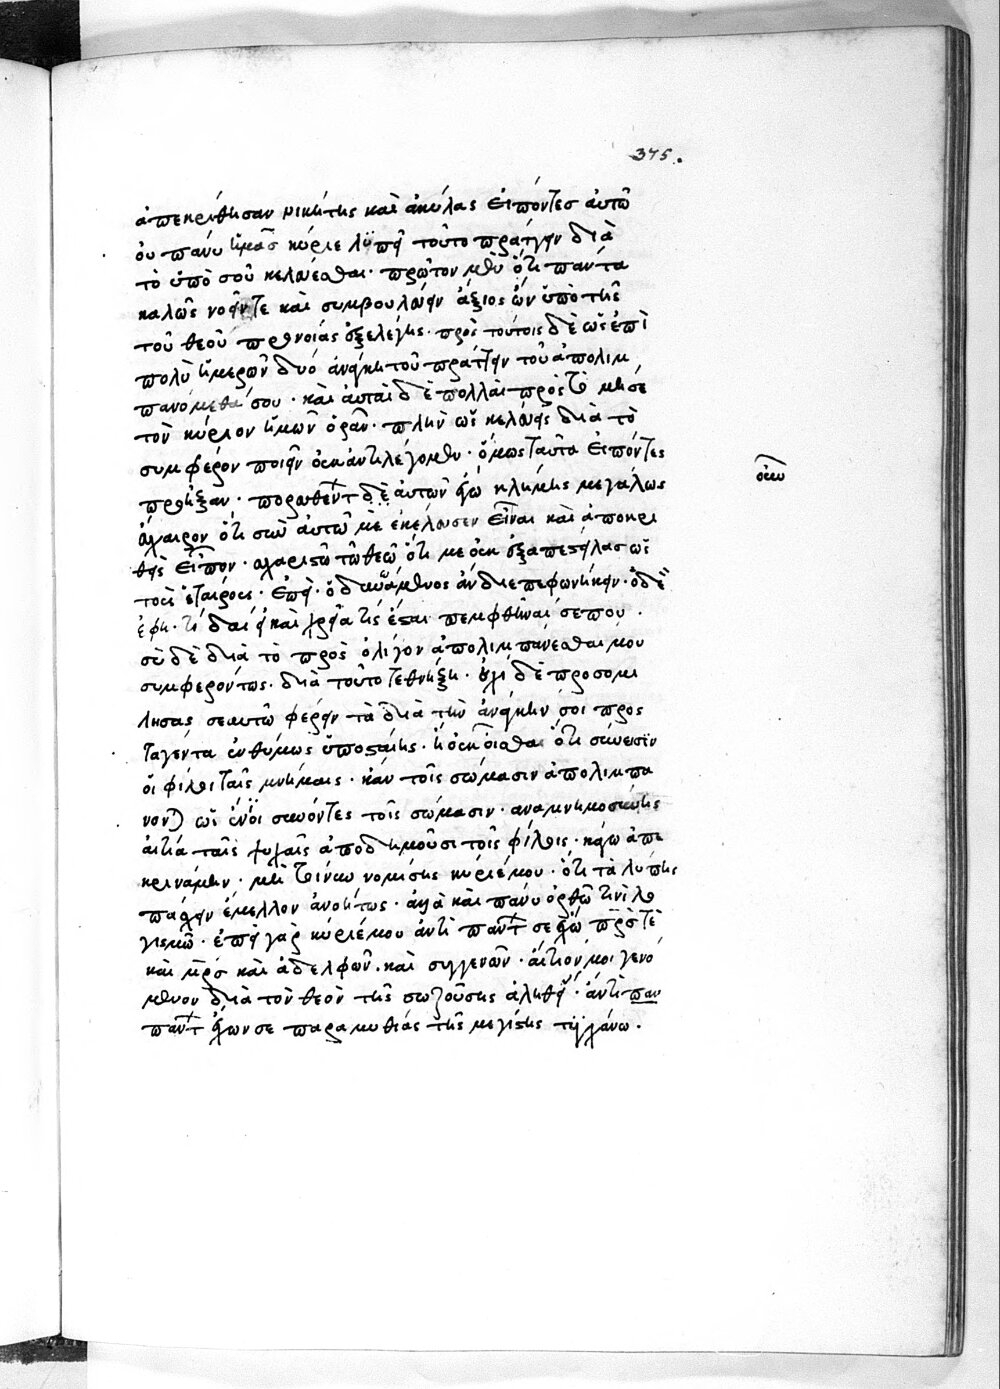 375.
ἀπεκρίθησαν νικήτης καὶ ἀκύλας εἰπόντες αὐτῶ
οὐ πάνυ ἡμᾶς κύριε λϋπεῖ τοῦτο πράττειν διὰ
τὸ ὑπὸ σοῦ κελεύεσθαι· πρῶτον μὲν ὅτι πάντα
καλῶς νοεῖν τε καὶ συμβουλεύειν ἄξιος ὢν ὑπὸ τῆς
τοῦ θεοῦ προνοίας ἐξελέγης· πρὸς τούτοις δὲ ὡς ἐπὶ
πολὺ ἡμερῶν δύο ἀνάγκη τοῦ πράττειν τοῦ ἀπολιμ
πανόμεθα σου· καὶ αὗται δὲ πολλαὶ πρὸς τὸ μή σε
τὸν κύριον ἡμῶν ὁρᾶν· πλὴν ὡς κελεύεις διὰ τὸ
συμφέρον ποιεῖν οὐκ ἀντιλέγομεν· ὅμως ταῦτα εἰπόντες
προῆξαν· πορευθέντ δὲ αὐτῶν ἐγὼ κλήμης μεγάλως
ἔχαιρον ὅτι σὺν αὐτῶ μὲ ἐκέλευσεν εἶναι καὶ ἀποκρι
θεὶς εἶπον· εὐχαριστῶ τῶ θεῶ ὅτι με οὐκ ἐξαπέστειλας ὡς
τοὺς ἑταίρους· ἐπεὶ
ἔφη· τί
σὲ δὲ διὰ τὸ πρὸς ὀλίγον ἀπολιμπάνεσθαί μου
συμφερόντως· διὰ τοῦτο τεθνήξη· οὐχὶ δὲ προσομι
λήσας σεαυτῶ φέρειν τὰ διὰ τὴν ἀνάγκην σοι προσ
ταγέντα εὐθύμως ὑποστήσης· ἢ οὐκ οἶσθα ὅτι σύνεισϊν
οἱ φίλοι ταῖς μνήμαις· κἂν τοῖς σώμασιν ἀπολιμπά
νονται ὡς ἔνϊοι συνόντες τοῖς σώμασιν· ἀναμνημοσύνης
αἰτία ταῖς ψυχαῖς ἀποδημοῦσι τοῖς φίλοις· κἀγὼ ἀπε
κρινάμην· μὴ νομίσης κύριέ μου· ὅτι τὰ λύπης
πάσχειν ἔμελλον ἀνοήτως· ἀλλὰ καὶ πάνυ ὀρθῶ τινὶ λο
γισμῶ· ἐπεὶ γὰρ κύριέ μου ἀντὶ πάντ σε ἔχω πρσ τὲ
καὶ μρσ καὶ ἀδελφῶν· καὶ συγγενῶν· αἴτιόν μοι γενό
μενον διὰ τὸν θεὸν τῆς σωζούσης ἀληθεί· ἀντὶ παν
πάντ ἔχων σε παραμυθίας τῆς μεγίστης τϋγχάνω·